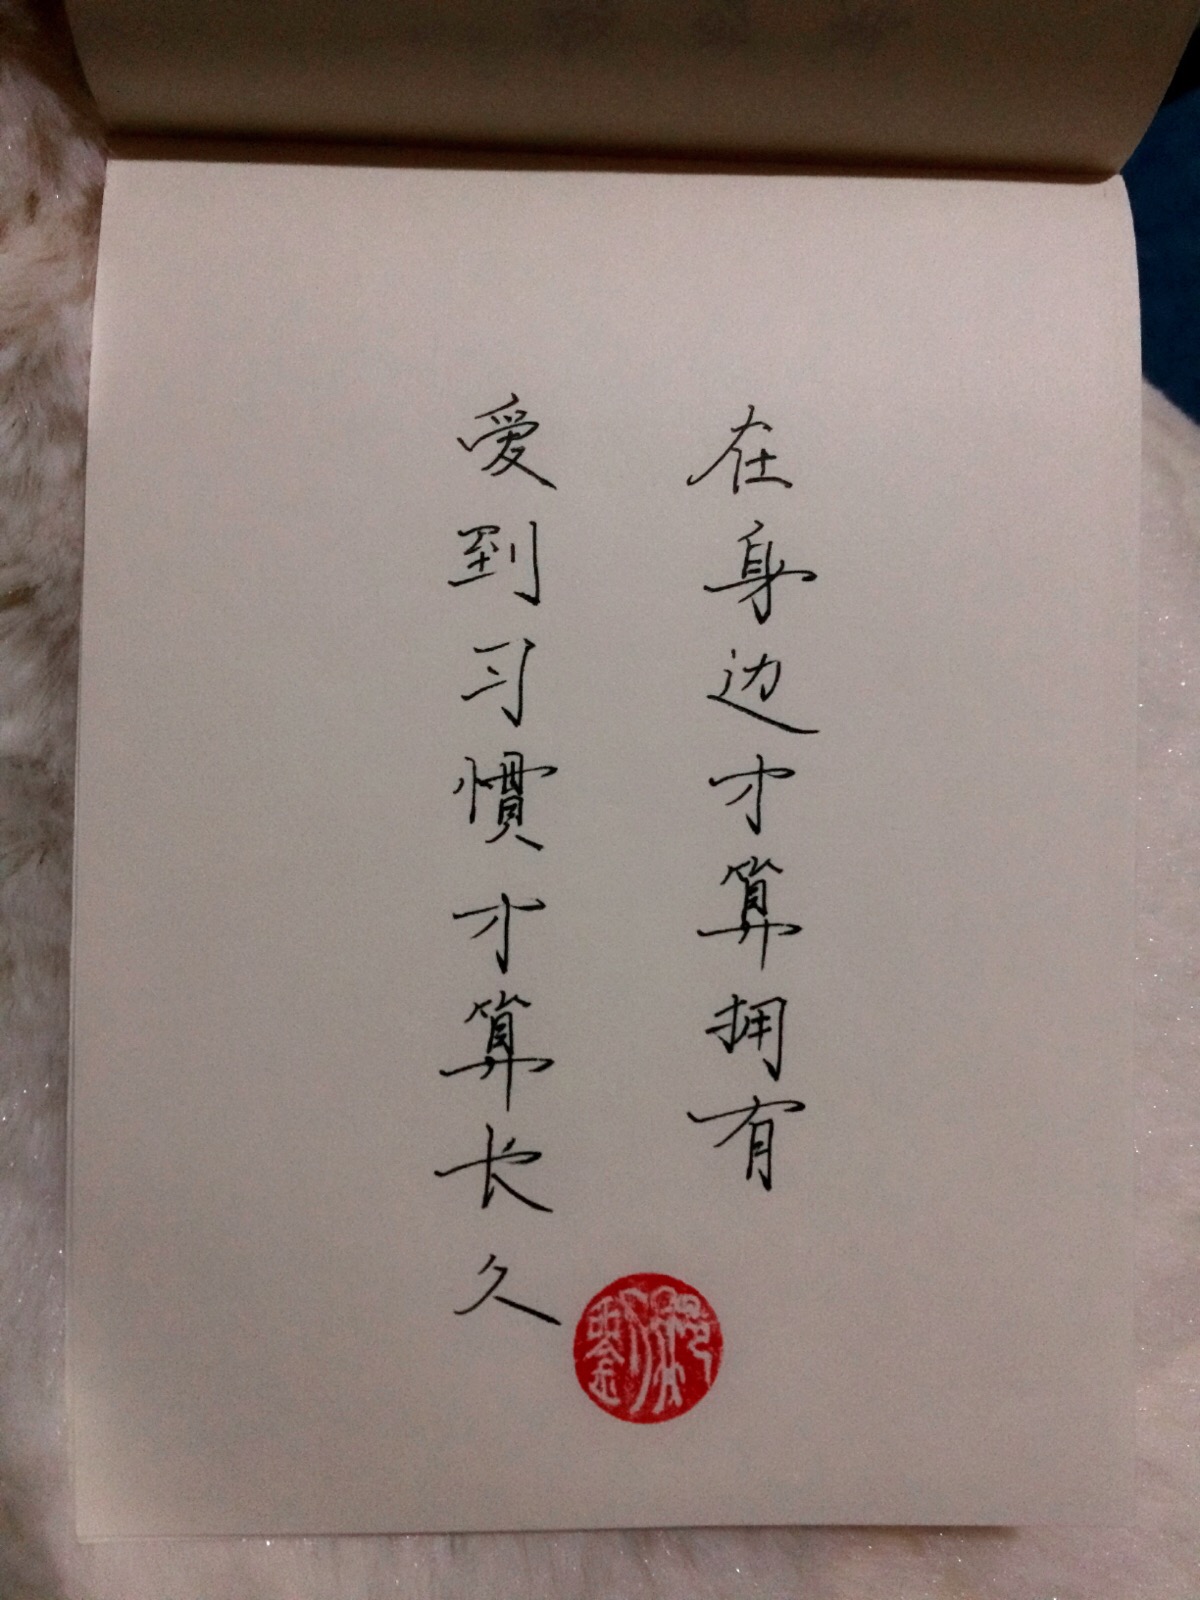 在身边才算拥有
爱到习惯才算长久